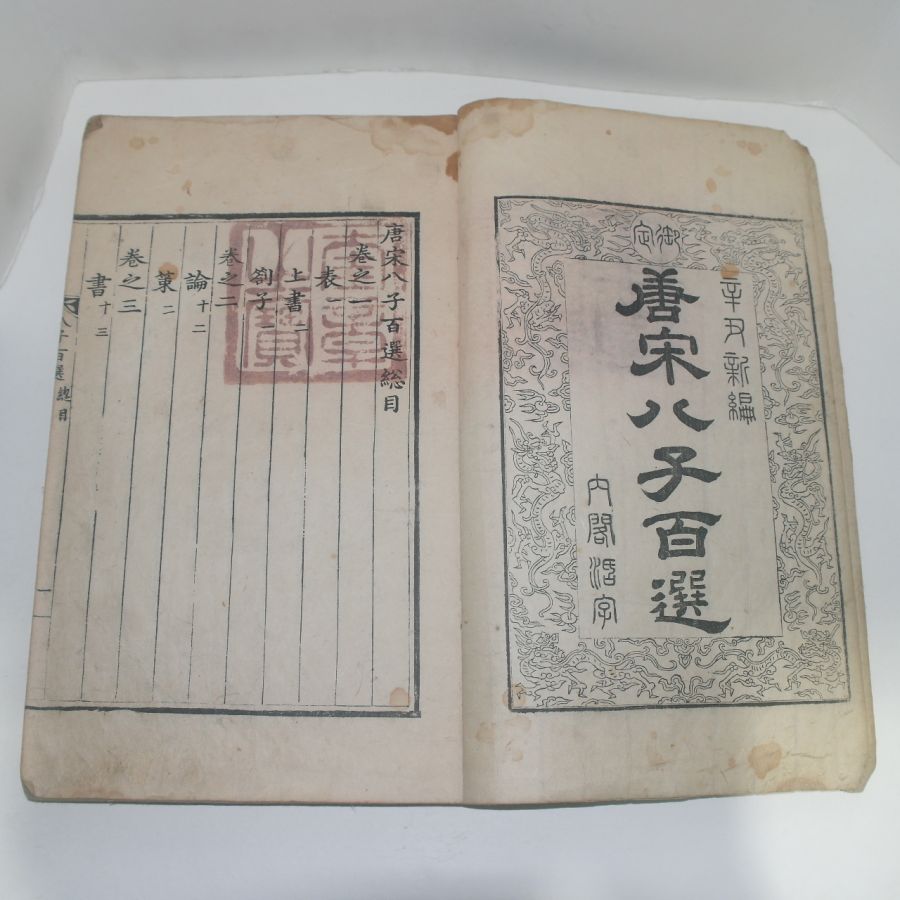 御定
辛丑新編
唐宋八子百選
內閣活字
唐宋八子百選総目
卷之一
表一
上書二
劄子一
卷之二
論十二
策二
卷之三
書十三
八子百選 總目